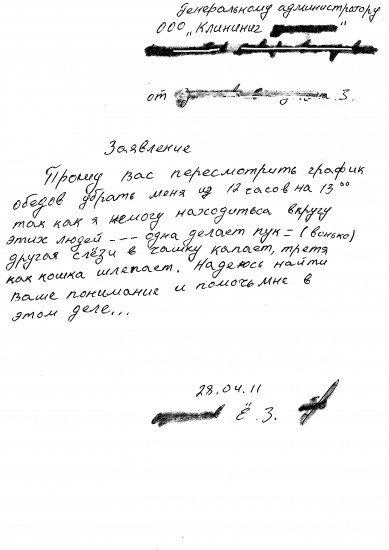 Генеральному администратору
ООО "Клининг "
от З.
Заявление
Прошу Вас пересмотрить график
обедов убрать меня из 12 часов на 13 ⁰⁰
так как я немогу находиться вкругу
этих людей --- одна делает пук = (вонько)
другая слёзи в чашку капает, третя
как кошка шлепает. Надеюсь найти
Ваше понимание и помочь мне в
этом деле...
28.04.11
Ё. З.